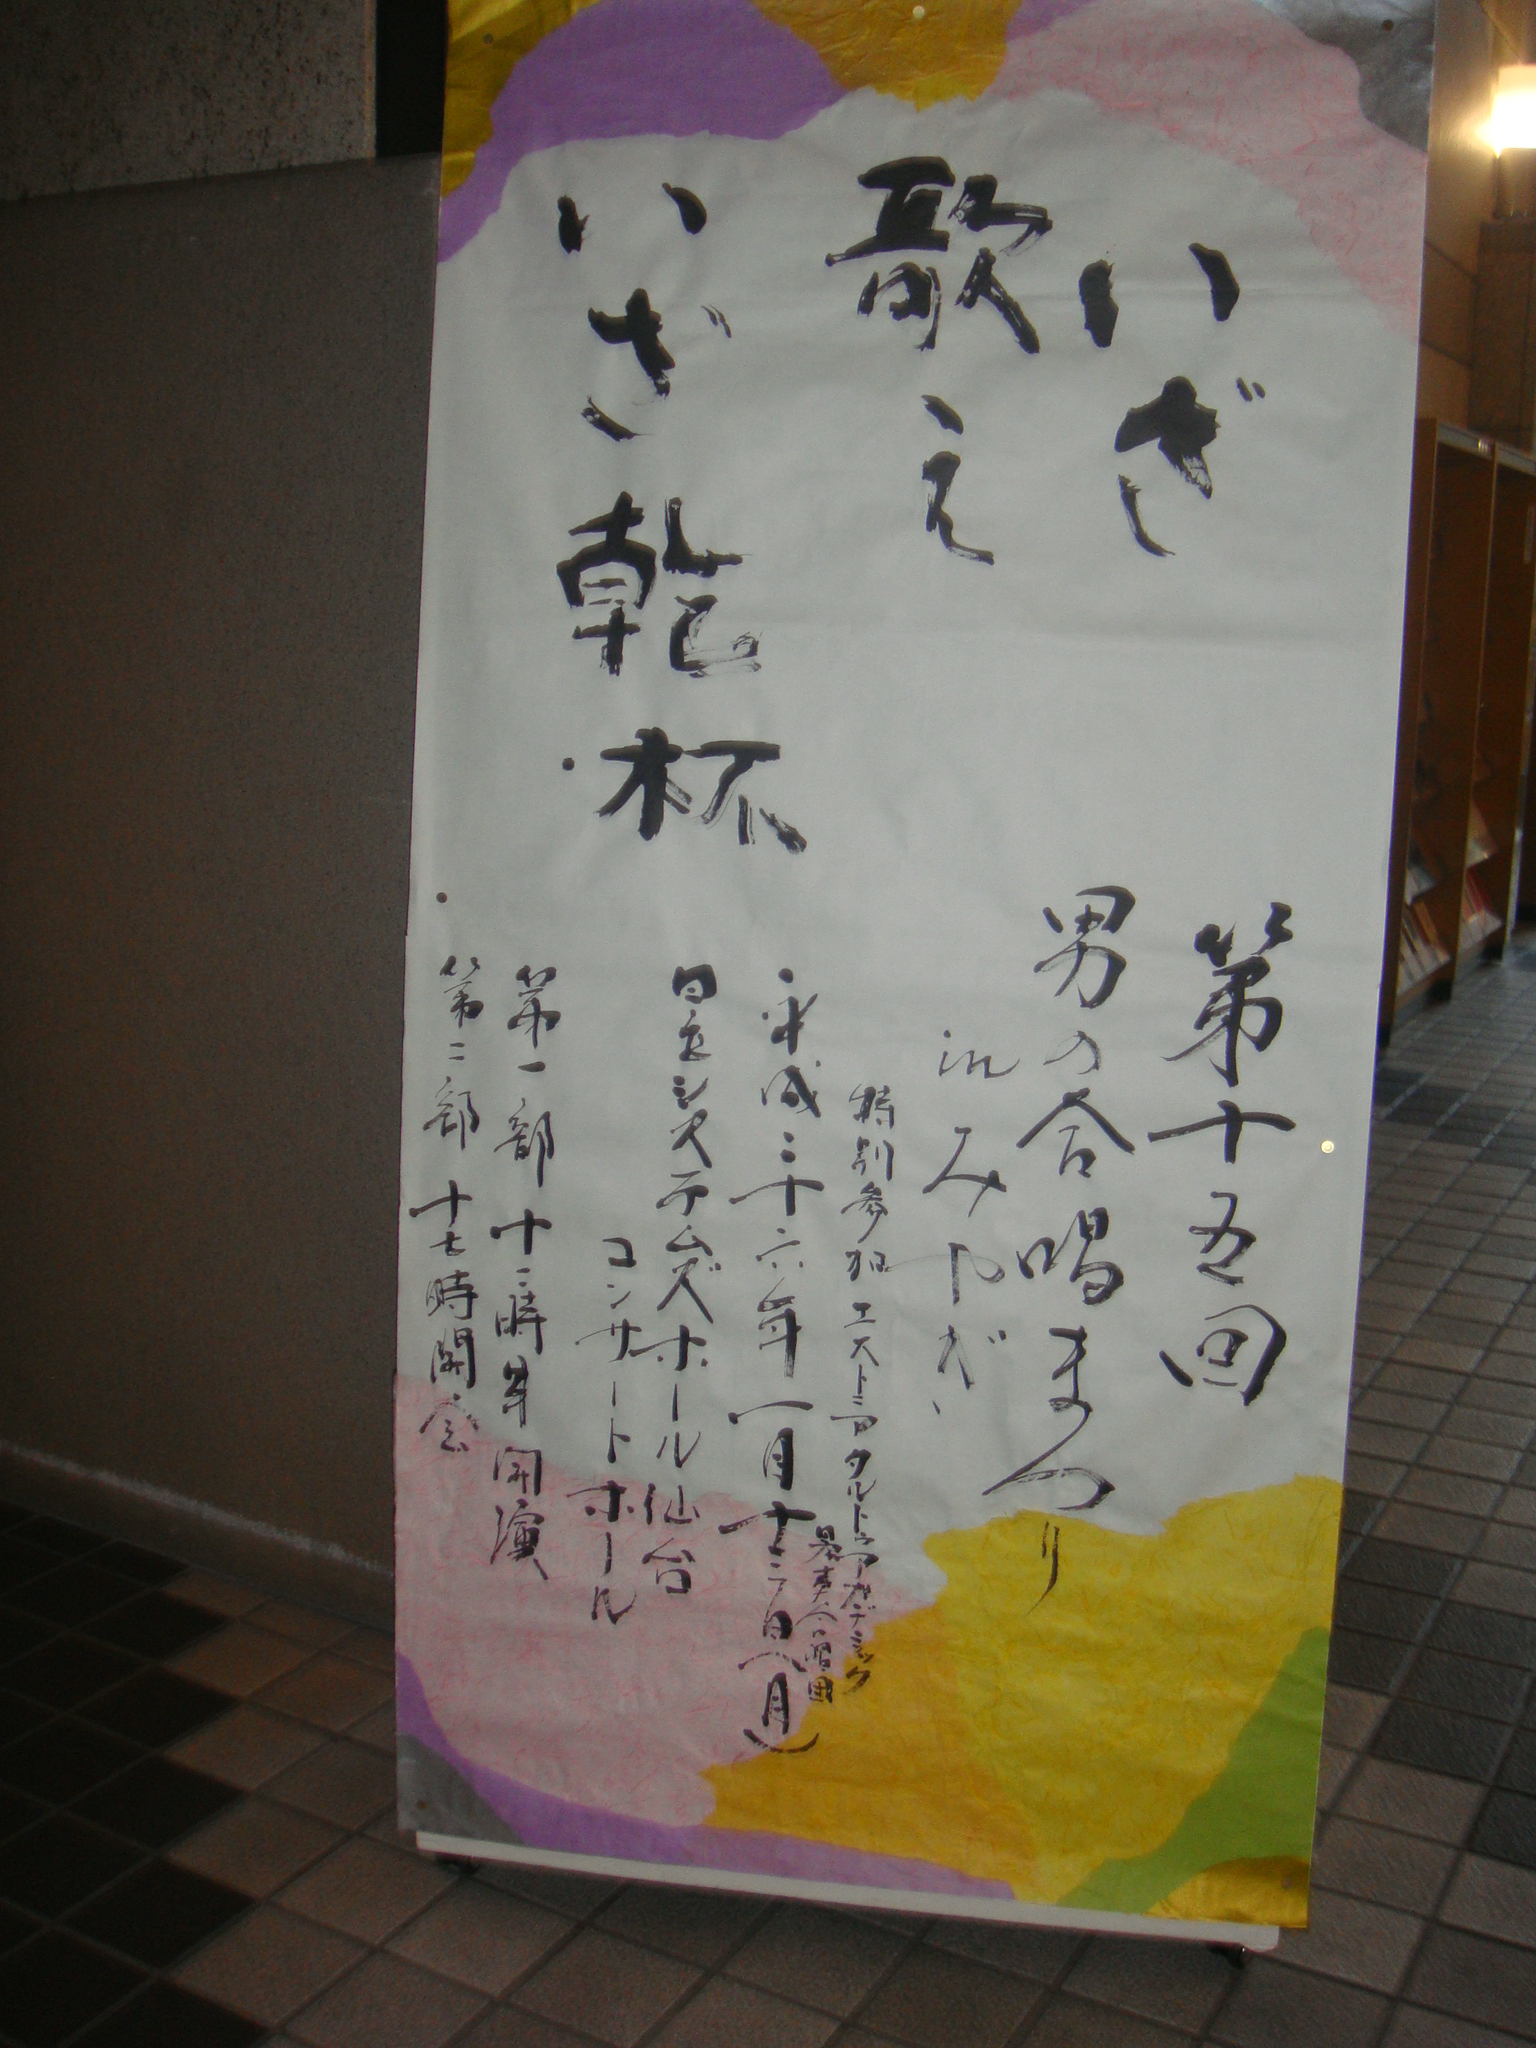 いざ
歌え
いざ乾杯
第十五回
男の合唱まつり
in みやぎ
特別参加 エストニアタルトゥアカデミック
男声合唱団
平成二十六年一月十三日(月)
日立システムズホール仙台
コンサートホール
第一部 十二時半開演
第二部 十七時開会